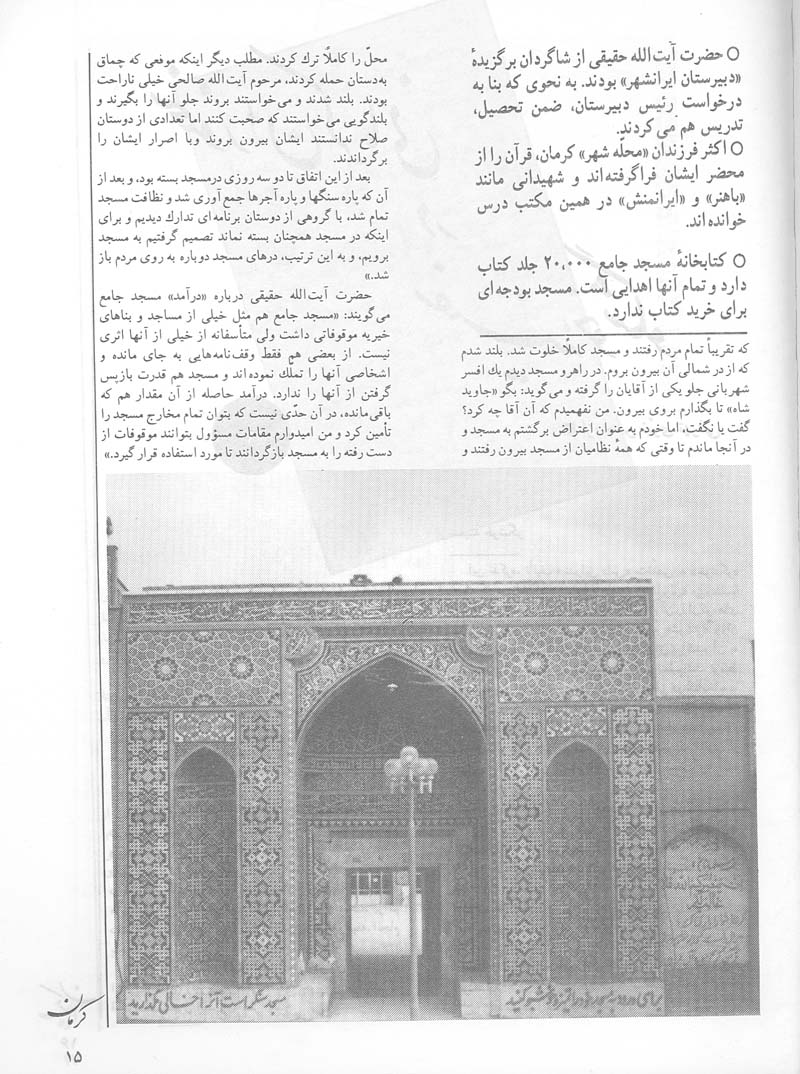 ○ حضرت آیت‌الله حقیقی از شاگردان برگزیدهٔ
«دبیرستان ایرانشهر» بودند. به نحوی که بنا به
درخواست رئیس دبیرستان، ضمن تحصیل،
تدریس هم می‌کردند.
○ اکثر فرزندان «محلّه شهر» کرمان، قرآن را از
محضر ایشان فراگرفته‌اند و شهیدانی مانند
«باهنر» و «ایرانمنش» در همین مکتب درس
خوانده‌اند.
○ کتابخانهٔ مسجد جامع ۲۰،۰۰۰ جلد کتاب
دارد و تمام آنها اهدایی است. مسجد بودجه‌ای
برای خرید کتاب ندارد.
که تقریباً تمام مردم رفتند و مسجد کاملاً خلوت شد. بلند شدم
که از در شمالی آن بیرون بروم. در راهرو مسجد دیدم یك افسر
شهربانی جلو یکی از آقایان را گرفته و می‌گوید: بگو «جاوید
شاه» تا بگذارم بروی بیرون. من نفهمیدم که آن آقا چه کرد؟
گفت یا نگفت، اما خودم به عنوان اعتراض برگشتم به مسجد و
در آنجا ماندم تا وقتی که همهٔ نظامیان از مسجد بیرون رفتند و
محلّ را کاملاً ترك کردند. مطلب دیگر اینکه موقعی که چماق
به‌دستان حمله کردند، مرحوم آیت‌الله صالحی خیلی ناراحت
بودند. بلند شدند و می‌خواستند بروند جلو آنها را بگیرند و
بلندگویی می‌خواستند که صحبت کنند اما تعدادی از دوستان
صلاح ندانستند ایشان بیرون بروند وبا اصرار ایشان را
برگرداندند.
بعد از این اتفاق تا دو سه روزی درمسجد بسته بود، و بعد از
آن که پاره سنگها و پاره آجرها جمع آوری شد و نظافت مسجد
تمام شد، با گروهی از دوستان برنامه‌ای تدارك دیدیم و برای
اینکه در مسجد همچنان بسته نماند تصمیم گرفتیم به مسجد
برویم، و به این ترتیب، درهای مسجد دوباره به روی مردم باز
شد.»
حضرت آیت‌الله حقیقی درباره «درآمد» مسجد جامع
می‌گویند: «مسجد جامع هم مثل خیلی از مساجد و بناهای
خیریه موقوفاتی داشت ولی متأسفانه از خیلی از آنها اثری
نیست. از بعضی هم فقط وقف‌نامه‌هایی به جای مانده و
اشخاصی آنها را تملّك نموده‌اند و مسجد هم قدرت بازپس
گرفتن از آنها را ندارد. درآمد حاصله از آن مقدار هم که
باقی‌مانده، در آن حدّی نیست که بتوان تمام مخارج مسجد را
تأمین کرد و من امیدوارم مقامات مسؤول بتوانند موقوفات از
دست رفته را به مسجد بازگردانند تا مورد استفاده قرار گیرد.»
مسجد سنگر است آنرا خالی نگذارید
کرمان
۱۵